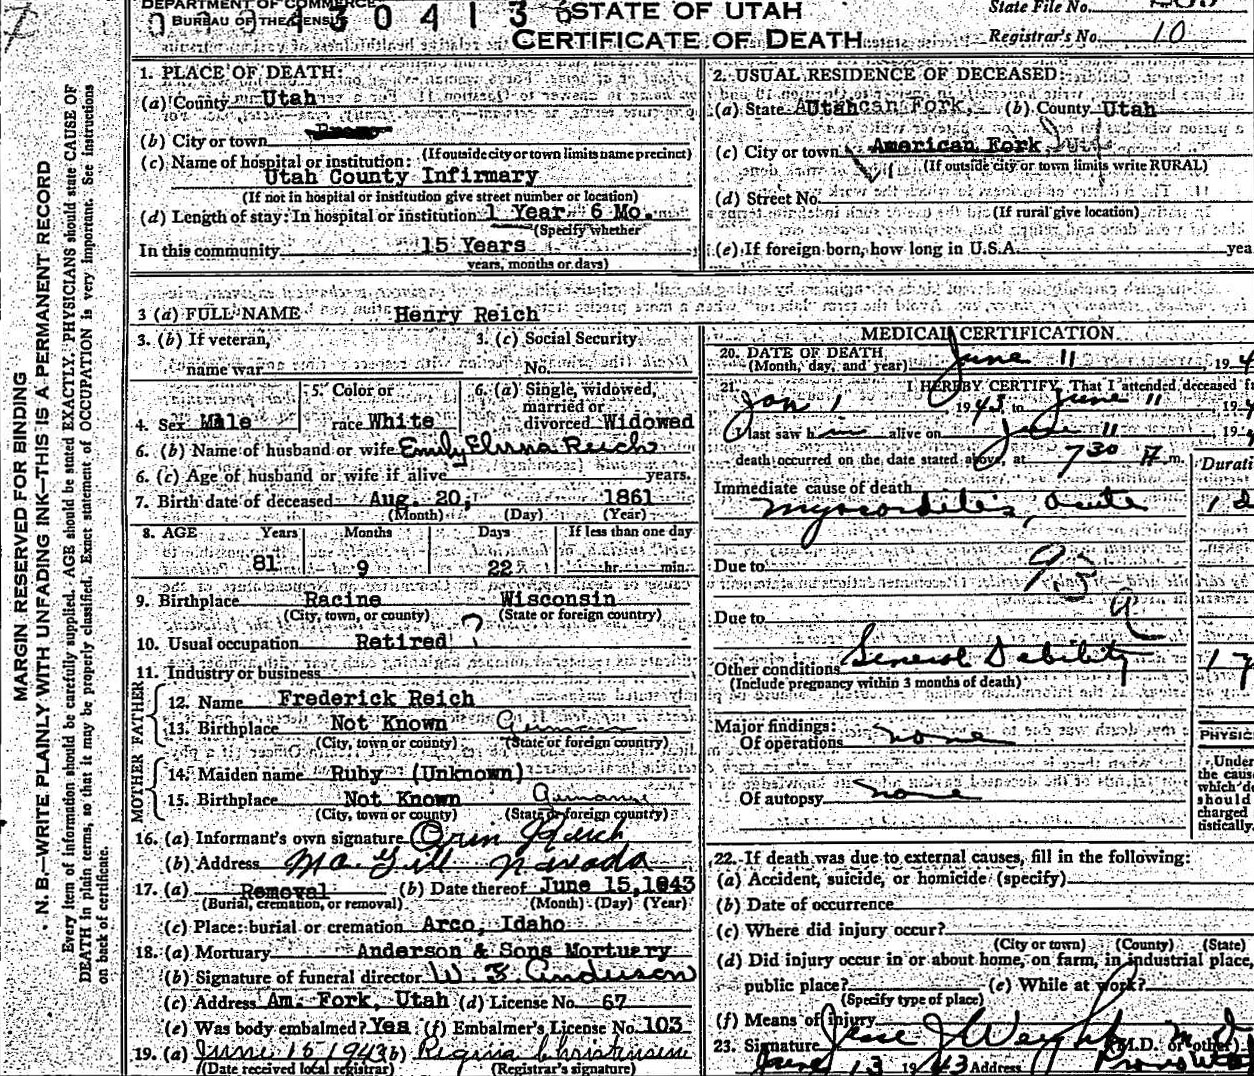 DEPARTMENT OF COMMERCE
BUREAU OF THE CENSUS
STATE OF UTAH
CERTIFICATE OF DEATH
State File No.
Registrar's No. 10
MARGIN RESERVED FOR BINDING
N. B.—WRITE PLAINLY WITH UNFADING INK—THIS IS A PERMANENT RECORD
Every item of information should be carefully supplied. AGE should be stated EXACTLY. PHYSICIANS should state CAUSE OF
DEATH in plain terms, so that it may be properly classified. Exact statement of OCCUPATION is very important. See instructions
on back of certificate.
1. PLACE OF DEATH:
(a) County Utah
(b) City or town
(If outside city or town limits name precinct)
(c) Name of hospital or institution:
Utah County Infirmary
(If not in hospital or institution give street number or location)
(d) Length of stay: In hospital or institution 1 Year 6 Mo.
(Specify whether
In this community 15 Years
years, months or days)
2. USUAL RESIDENCE OF DECEASED:
(a) State Utah (b) County Utah
(c) City or town American Fork
(If outside city or town limits write RURAL)
(d) Street No.
(If rural give location)
(e) If foreign born, how long in U.S.A. yea
3 (a) FULL NAME Henry Reich
3. (b) If veteran,
name war
3. (c) Social Security
No.
4. Sex Male
5. Color or
race White
6. (a) Single, widowed,
married or
divorced Widowed
6. (b) Name of husband or wife Emily Reich
6. (c) Age of husband or wife if alive years.
7. Birth date of deceased Aug. 20, 1861
(Month) (Day) (Year)
8. AGE Years Months Days If less than one day
81 9 22 hr. min.
9. Birthplace Racine Wisconsin
(City, town, or county) (State or foreign country)
10. Usual occupation Retired ?
11. Industry or business
FATHER
12. Name Frederick Reich
13. Birthplace Not Known Germany
(City, town or county) (State or foreign country)
MOTHER
14. Maiden name Ruby (Unknown)
15. Birthplace Not Known Germany
(City, town or county) (State or foreign country)
16. (a) Informant's own signature Orin Reich
(b) Address Mc Gill Nevada
17. (a) Removal (b) Date thereof June 15, 1943
(Burial, cremation, or removal) (Month) (Day) (Year)
(c) Place: burial or cremation Arco, Idaho
18. (a) Mortuary Anderson & Sons Mortuary
(b) Signature of funeral director W. E. Anderson
(c) Address Am. Fork, Utah (d) License No. 67
(e) Was body embalmed? Yes (f) Embalmer's License No. 103
19. (a) June 15 1943 (b) Regina Christensen
(Date received local registrar) (Registrar's signature)
MEDICAL CERTIFICATION
20. DATE OF DEATH June 11, 194
(Month, day, and year)
21. I HEREBY CERTIFY, That I attended deceased f
Jan 1 1943, to June 11, 194
I last saw him alive on June 11, 19
death occurred on the date stated above, at 7 30 m.
Immediate cause of death Durati
Myocarditis, acute 1 d
Due to
93
a
Due to
Other conditions General Debility 1 y
(Include pregnancy within 3 months of death)
Major findings:
Of operations none
PHYSIC
Of autopsy none
Under
the cause
which de
should
charged
tistically.
22. If death was due to external causes, fill in the following:
(a) Accident, suicide, or homicide (specify)
(b) Date of occurrence
(c) Where did injury occur?
(City or town) (County) (State)
(d) Did injury occur in or about home, on farm, in industrial place,
public place? (e) While at work?
(Specify type of place)
(f) Means of injury
23. Signature (M.D. or other)
June 13 1943 Address Provo